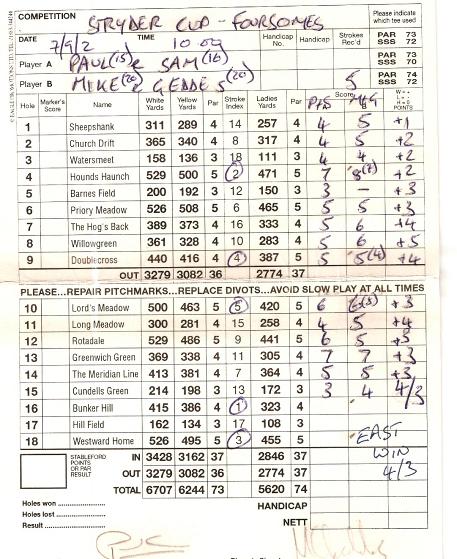 COMPETITION STRYDER CUP - FOURSOMES
Please indicate which tee used
DATE 7/9/2 TIME 10 09 Handicap No. Handicap Strokes Rec'd PAR 73 SSS 72
Player A PAUL(15) & SAM(16) PAR 73 SSS 70
Player B MIKE(20) & GEDDES(20) 5 PAR 74 SSS 72
Hole Marker's Score Name White Yards Yellow Yards Par Stroke Index Ladies Yards Par Score P+S M+G B W = + L = - H = 0 POINTS
1 Sheepshank 311 289 4 14 257 4 4 5 +1
2 Church Drift 365 340 4 8 317 4 4 5 +2
3 Watersmeet 158 136 3 18 111 3 4 4 +2
4 Hounds Haunch 529 500 5 2 471 5 7 8(7) +2
5 Barnes Field 200 192 3 12 150 3 3 - +3
6 Priory Meadow 526 508 5 6 465 5 5 5 +3
7 The Hog's Back 389 373 4 16 333 4 5 6 +4
8 Willowgreen 361 328 4 10 283 4 5 6 +5
9 Doublecross 440 416 4 4 387 5 5 5(4) +4
OUT 3279 3082 36 2774 37
PLEASE...REPAIR PITCHMARKS...REPLACE DIVOTS...AVOID SLOW PLAY AT ALL TIMES
10 Lord's Meadow 500 463 5 5 420 5 6 +3
11 Long Meadow 300 281 4 15 258 4 4 5 +4
12 Rotadale 529 486 5 9 441 5 6 5 +3
13 Greenwich Green 369 338 4 11 305 4 7 7 +3
14 The Meridian Line 413 381 4 7 364 4 5 5 +3
15 Cundells Green 214 198 3 13 172 3 3 4 4/3
16 Bunker Hill 415 386 4 1 323 4
17 Hill Field 162 134 3 17 108 3
18 Westward Home 526 495 5 3 455 5 EAST
STABLEFORD POINTS OR PAR RESULT
IN 3428 3162 37 2846 37 WIN
OUT 3279 3082 36 2774 37 4/3
TOTAL 6707 6244 73 5620 74
Holes won
HANDICAP
Holes lost
Result
NETT